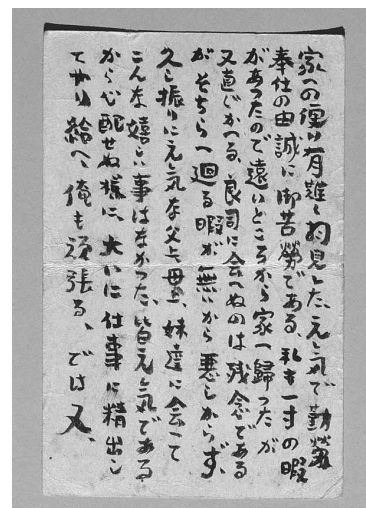 家への便り有難く拝見した、元気で勤労
奉仕の由誠に御苦労である、私も一寸の暇
があつたので遠いところから家へ歸つたが
又直ぐかへる、良司に会へぬのは残念である
がそちらへ廻る暇が無いから悪しからず、
久し振りに元気な父上、母上、妹達に会つて
こんな嬉しい事はなかつた、皆元気である
から心配せぬ様に、大いに仕事に精出し
てやり給へ、俺も頑張る、では又、